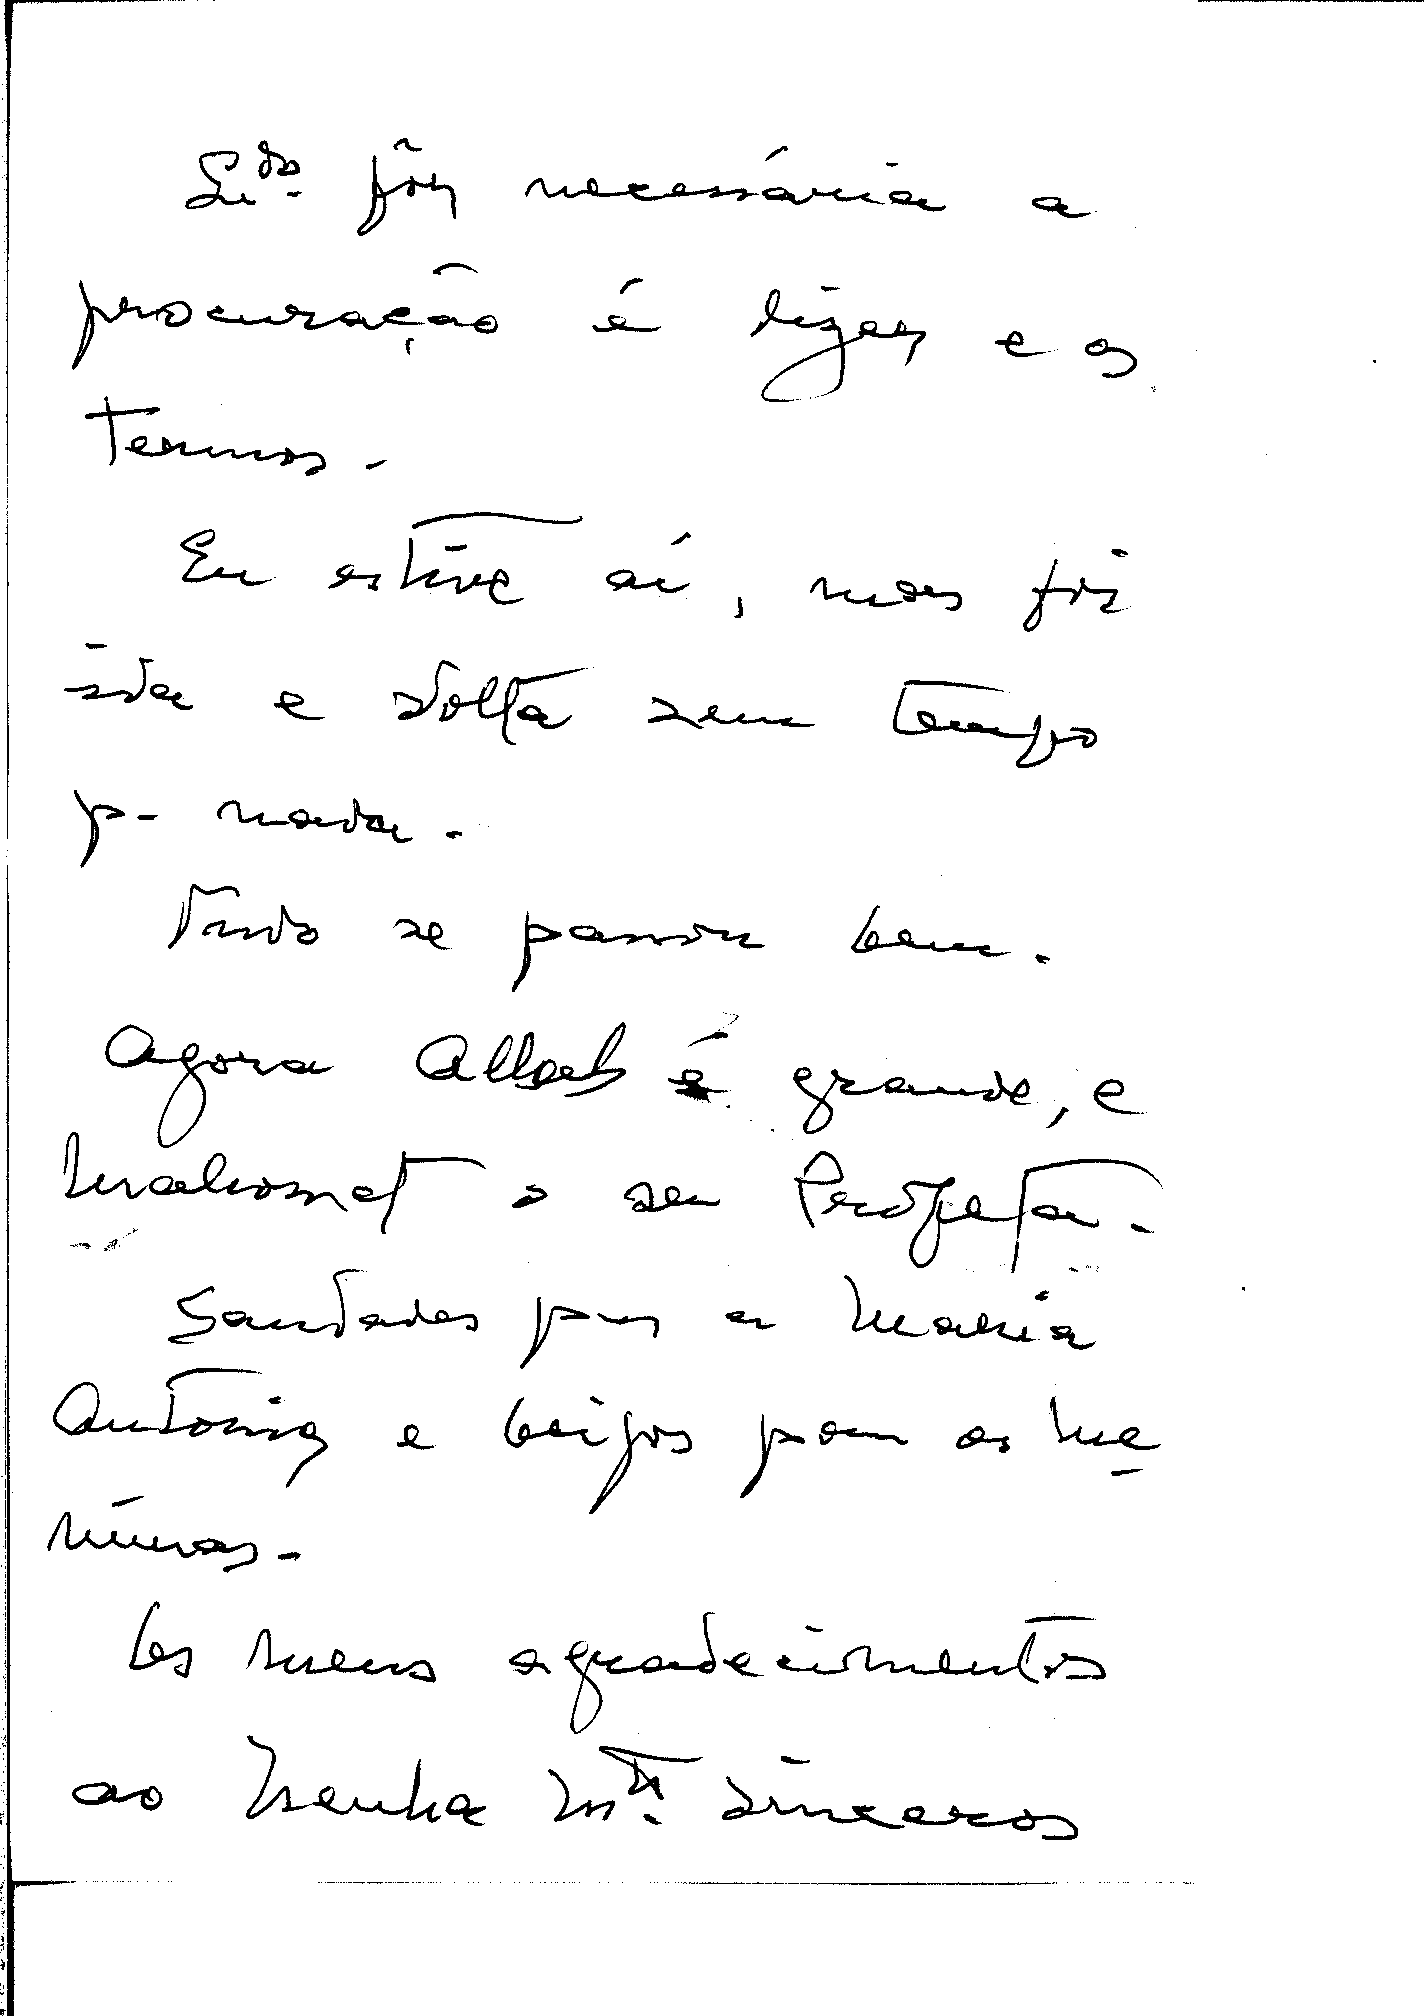 Qu.do fôr necessária a
procuração é dizer e os
termos.
Eu estive aí, mas foi
ida e volta sem tempo
p- nada.
Tudo se passou bem.
Agora Allah é grande, e
Mahomet o seu Profeta.
Saudades para a Maria
Antónia e beijos para os me
ninos.
Os meus agradecimentos
ao mtº. sinceros